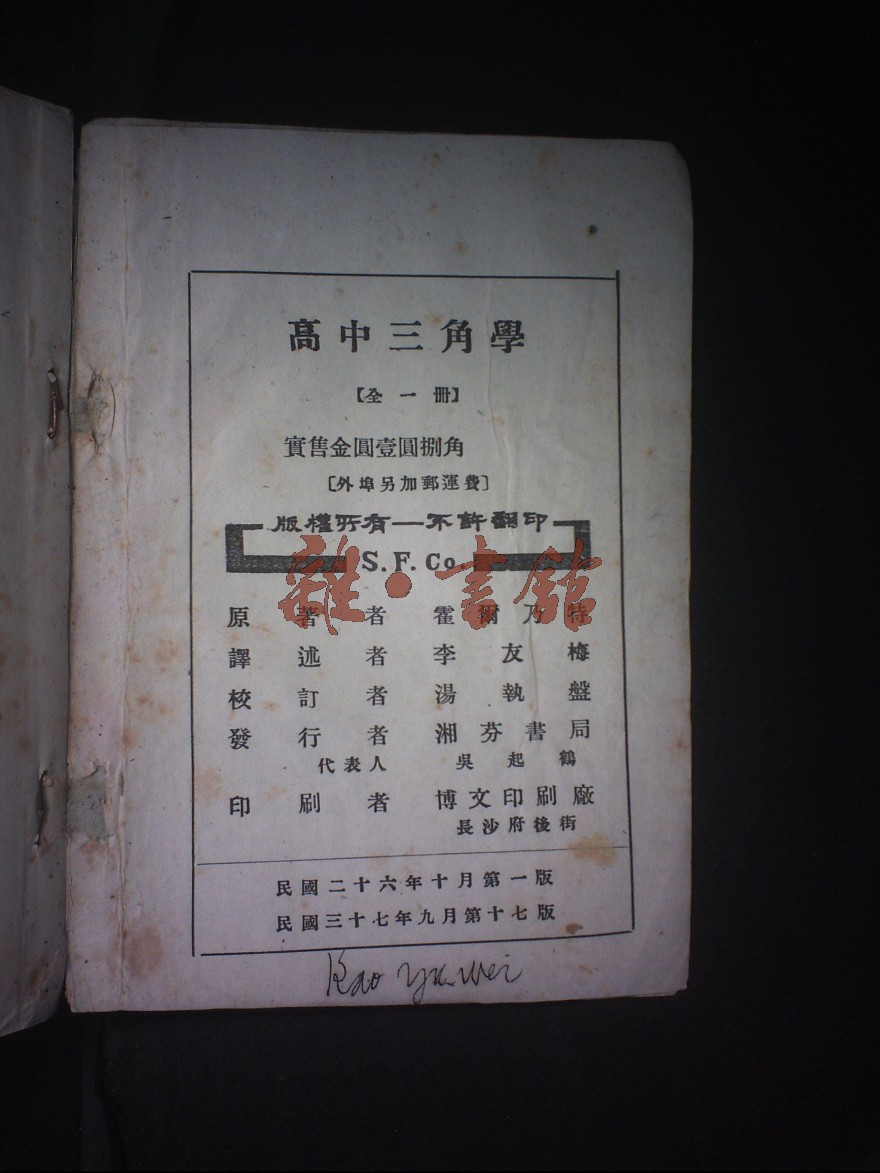 高中三角學
【全一冊】
實售金圓壹圓捌角
〔外埠另加郵運費〕
版權所有—不許翻印
S. F. Co.
雜·書館
原著者 霍爾乃特
譯述者 李友梅
校訂者 湯執盤
發行者 湘芬書局
代表人 吳起鶴
印刷者 博文印刷廠
長沙府後街
民國二十六年十月第一版
民國三十七年九月第十七版
Kao Yu Wei